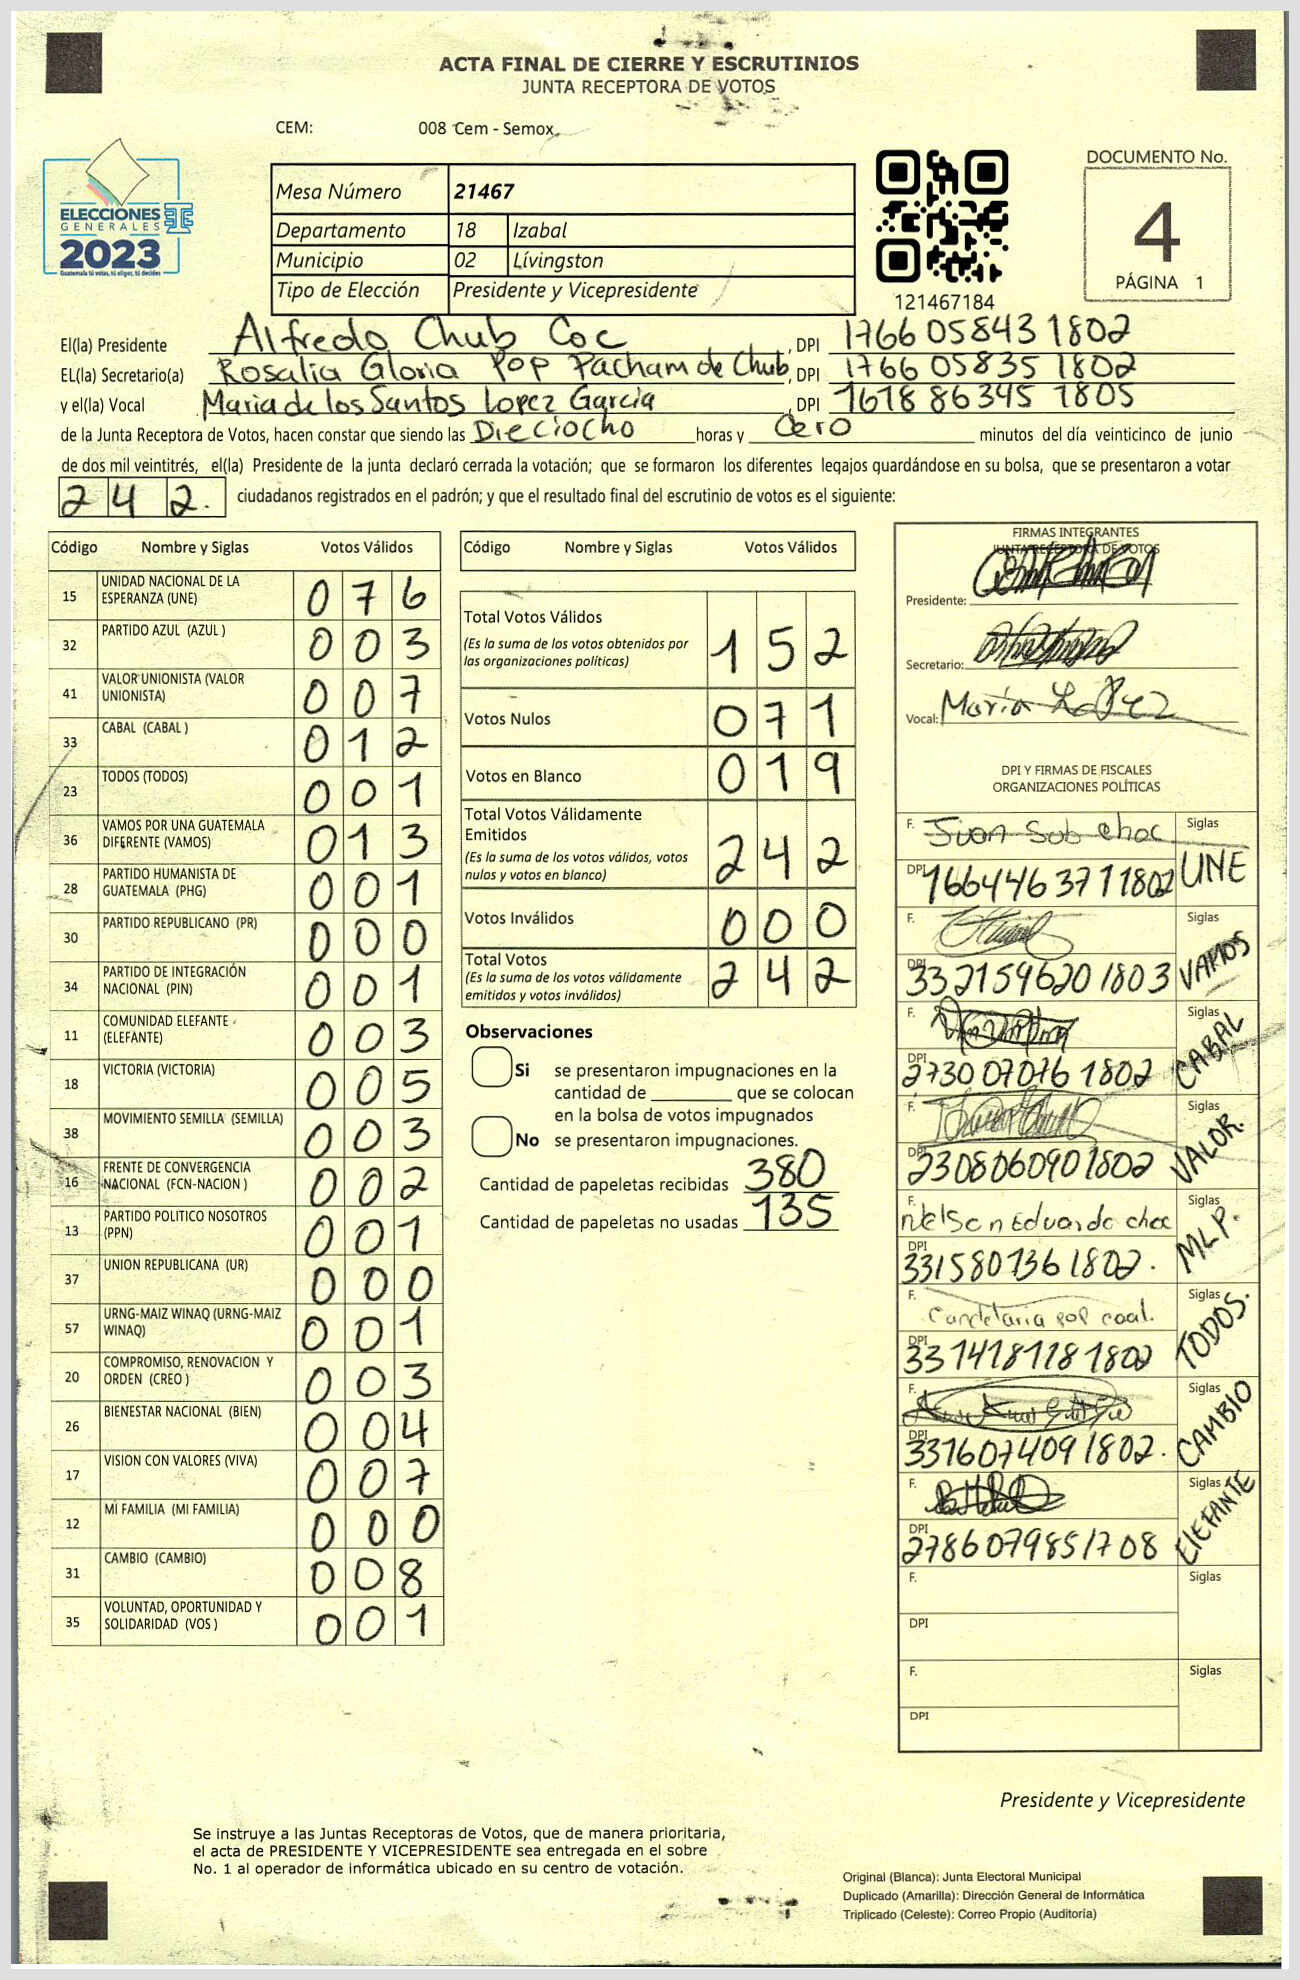 ACTA FINAL DE CIERRE Y ESCRUTINIOS
JUNTA RECEPTORA DE VOTOS
CEM: 008 Cem - Semox
ELECCIONES
GENERALES
2023
Guatemala tú votas, tú eliges, tú decides
Mesa Número 21467
Departamento 18 Izabal
Municipio 02 Lívingston
Tipo de Elección Presidente y Vicepresidente
121467184
DOCUMENTO No.
4
PÁGINA 1
El(la) Presidente Alfredo Chub Coc, DPI 1766 05843 1802
EL(la) Secretario(a) Rosalia Gloria Pop Pacham de Chub, DPI 1766 05835 1802
y el(la) Vocal Maria de los Santos Lopez Garcia, DPI 1618 86345 1805
de la Junta Receptora de Votos, hacen constar que siendo las Dieciocho horas y Cero minutos del día veinticinco de junio
de dos mil veintitrés, el(la) Presidente de la junta declaró cerrada la votación; que se formaron los diferentes legajos guardándose en su bolsa, que se presentaron a votar
242. ciudadanos registrados en el padrón; y que el resultado final del escrutinio de votos es el siguiente:
Código Nombre y Siglas Votos Válidos
15 UNIDAD NACIONAL DE LA ESPERANZA (UNE) 076
32 PARTIDO AZUL (AZUL ) 003
41 VALOR UNIONISTA (VALOR UNIONISTA) 007
33 CABAL (CABAL ) 012
23 TODOS (TODOS) 001
36 VAMOS POR UNA GUATEMALA DIFERENTE (VAMOS) 013
28 PARTIDO HUMANISTA DE GUATEMALA (PHG) 001
30 PARTIDO REPUBLICANO (PR) 000
34 PARTIDO DE INTEGRACIÓN NACIONAL (PIN) 001
11 COMUNIDAD ELEFANTE (ELEFANTE) 003
18 VICTORIA (VICTORIA) 005
38 MOVIMIENTO SEMILLA (SEMILLA) 003
16 FRENTE DE CONVERGENCIA NACIONAL (FCN-NACION ) 002
13 PARTIDO POLITICO NOSOTROS (PPN) 001
37 UNION REPUBLICANA (UR) 000
57 URNG-MAIZ WINAQ (URNG-MAIZ WINAQ) 001
20 COMPROMISO, RENOVACION Y ORDEN (CREO ) 003
26 BIENESTAR NACIONAL (BIEN) 004
17 VISION CON VALORES (VIVA) 007
12 MI FAMILIA (MI FAMILIA) 000
31 CAMBIO (CAMBIO) 008
35 VOLUNTAD, OPORTUNIDAD Y SOLIDARIDAD (VOS ) 001
Código Nombre y Siglas Votos Válidos
Total Votos Válidos 152
(Es la suma de los votos obtenidos por
las organizaciones políticas)
Votos Nulos 071
Votos en Blanco 019
Total Votos Válidamente
Emitidos 242
(Es la suma de los votos válidos, votos
nulos y votos en blanco)
Votos Inválidos 000
Total Votos 242
(Es la suma de los votos válidamente
emitidos y votos inválidos)
Observaciones
Si se presentaron impugnaciones en la
cantidad de ________ que se colocan
en la bolsa de votos impugnados
No se presentaron impugnaciones.
Cantidad de papeletas recibidas 380
Cantidad de papeletas no usadas 135
FIRMAS INTEGRANTES
JUNTA RECEPTORA DE VOTOS
Presidente:
Secretario:
Vocal: Maria LoPez
DPI Y FIRMAS DE FISCALES
ORGANIZACIONES POLÍTICAS
F. Juan Sub choc Siglas
DPI 1664463711802 UNE
F. Siglas
DPI 3321596201803 VAMOS
F. Siglas
DPI 2730070761802 CABAL
F. Siglas
DPI 2308060901802 VALOR.
F. Nelson Eduardo choc Siglas
DPI 3315801361802. MLP.
F. Candelaria pop coal. Siglas
DPI 3314181181802 TODOS.
F. Siglas
DPI 3316074091802. CAMBIO
F. Siglas
DPI 2786079851708 ElEFANTE
F. Siglas
DPI
F. Siglas
DPI
Presidente y Vicepresidente
Se instruye a las Juntas Receptoras de Votos, que de manera prioritaria,
el acta de PRESIDENTE Y VICEPRESIDENTE sea entregada en el sobre
No. 1 al operador de informática ubicado en su centro de votación.
Original (Blanca): Junta Electoral Municipal
Duplicado (Amarilla): Dirección General de Informática
Triplicado (Celeste): Correo Propio (Auditoría)